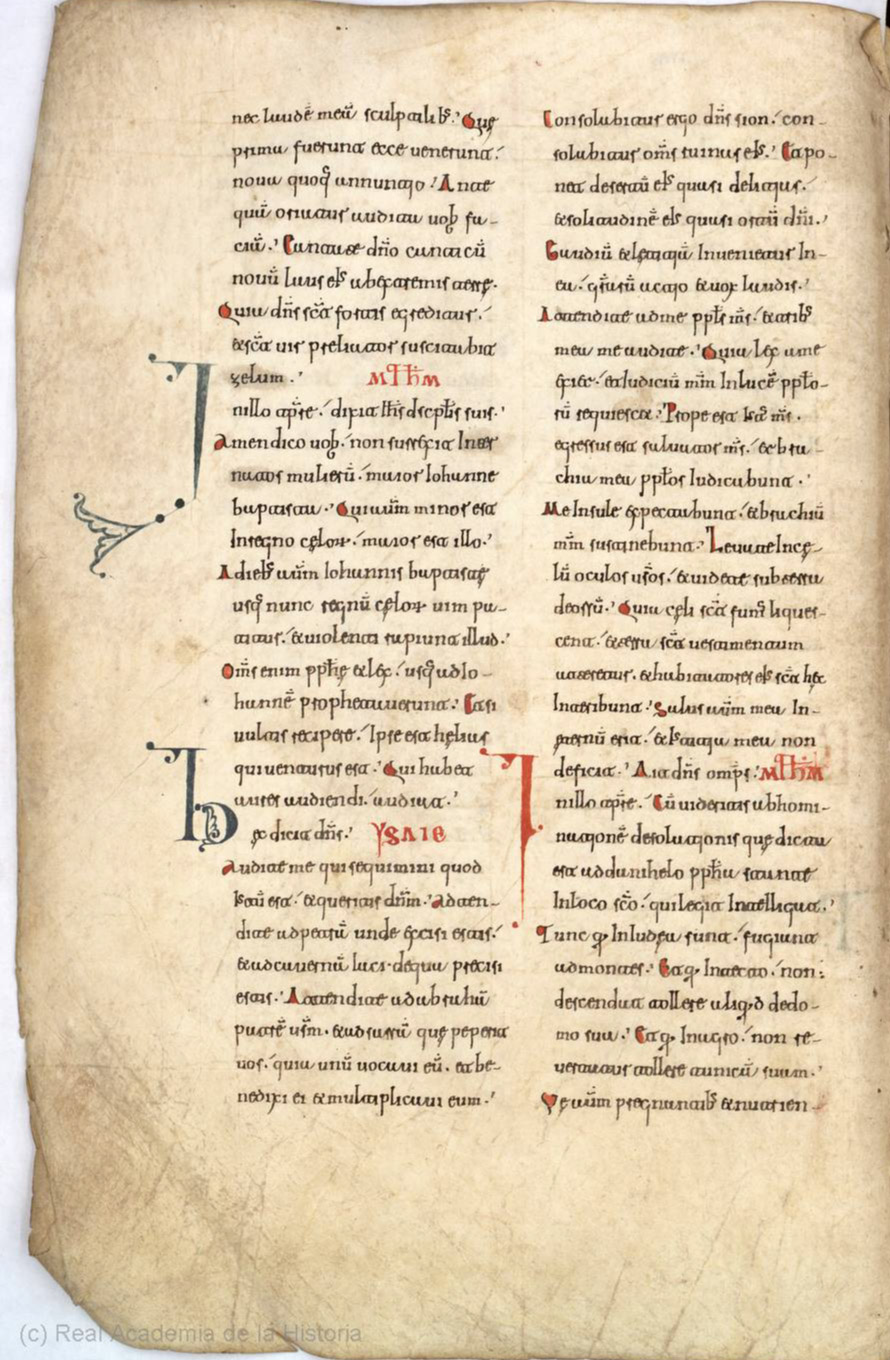 nec laudē meā sculptilibꝫ. Que
prima fuerunt ecce uenerunt.
noua quoqꝫ annuntio. Ante
quā oriantur audita uobꝫ fa-
ciā. Cantate dn̄o canticū
nouū laus eꝰ ab extremis terre.
Quia dn̄s scā fortis egredietur.
& scā uir preliator suscitabit
zelum. MTHM
In illo tp̄re. dixit ih̄s dscpl̄is suis.
Amen dico uobꝫ. non surrexit Inter
natos mulierū. maior Iohanne
babtista. Qui autm̄ minor est
In regno celorꝝ. maior est illo.
A diebꝫ autm̄ Iohannis babtiste
usqꝫ nunc regnū celorꝝ uim pa-
titur. & uiolenti rapiunt illud.
Om̄s enim pph̄e & lex. usqꝫ ad Io-
hannē prophetauerunt. Et si
uultis recipere. Ipse est helias
qui uenturus est. Qui habet
aures audiendi. audiat.
Hec dicit dn̄s. YSAIE
Audite me qui sequimini quod
iustū est. & queritis dn̄m. Adten-
dite ad petrā unde excisi estis.
& ad cauernā laci. de qua precisi
estis. Attendite ad abraham
patrē ur̄m. & ad sarrā que peperit
uos. quia unū uocaui eū. et be-
nedixi ei & multiplicaui eum.
Consolabitur ergo dn̄s sion. con-
solabitur om̄s ruinas eꝰ. Et po-
net desertū eꝰ quasi delitias.
& solitudinē eꝰ quasi ortū dn̄i.
Gaudiū & letitiā Inuenietur In
ea. gr̄arū actio & uox laudis.
Attendite ad me pplꝰ mꝰ. & tribꝫ
mea me audite. Quia lex a me
exiet. & iudiciū mm̄ In lucē pplo-
rū requiescet. Prope est iustꝰ mꝰ.
egressus est saluator mꝰ. & bra-
chia mea pplos Iudicabunt.
Me Insule expectabunt. & brachiū
mm̄ sustinebunt. Leuate In ce-
lū oculos ur̄os. & uidete sub terra
deorsū. Quia celi scā fumꝰ liques-
cent. & terra scā uestimentum
atteretur. & habitatores eꝰ scā hec
Interibunt. Salus autm̄ mea In
eternū erit. & iustitia mea non
deficiet. Ait dn̄s omp̄s. MTHM
In illo tp̄re. Cū uideritis abhomi-
nationē desolationis que dicta
est a danihelo pph̄a stante
In loco sc̄o. qui legit Intelligat.
Tunc qi In Iudea sunt. fugiant
ad montes. Et qi In tecto. non
descendat tollere aliqid de do-
mo sua. Et qi In agro. non re-
uertatur tollere tunicā suam.
Ue autm̄ pregnantibꝫ & nutrien-
(c) Real Academia de la Historia